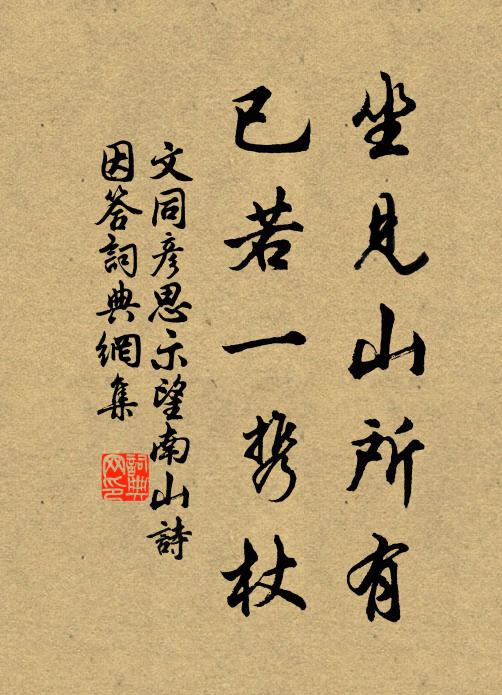 坐見山所有
已若一携杖
文同彦思示望南山詩
因答詞典網集
詞典
网印